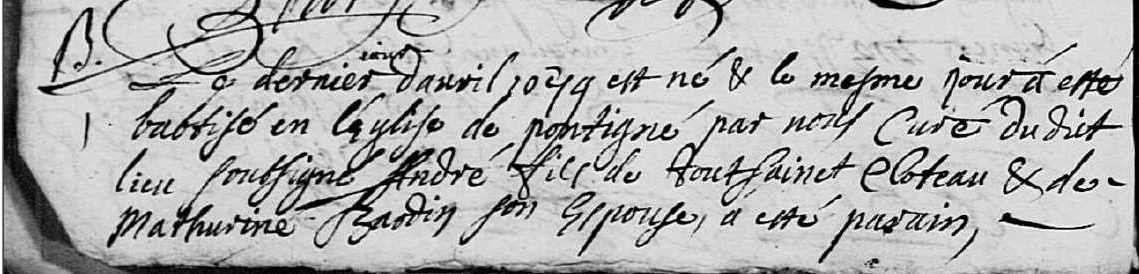 B.
jour
Le dernier d'avril 1679 est né & le mesme jour a esté
1 babtisé en l'église de pontigné par nous Curé dudict
lieu soubsigné André fils de toutsainct Eloteau & de
Mathurine Bardin son Espouse, a esté parain,